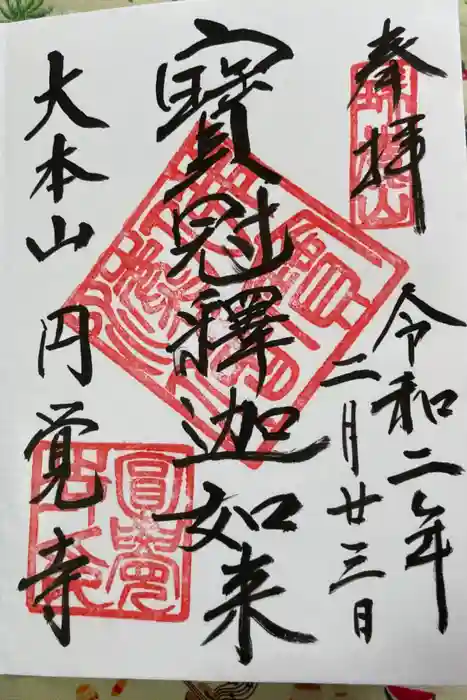 奉拝
令和二年
二月廿三日
寶冠釋迦如来
大本山円覚寺